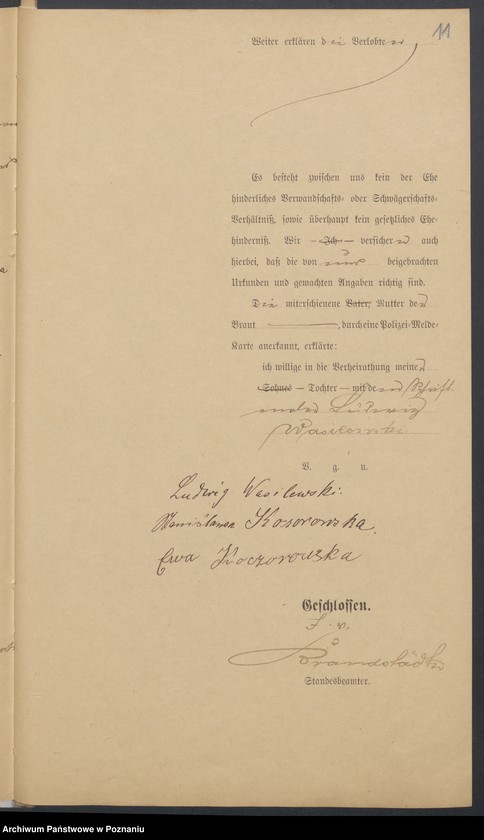 11
Weiter erklären die Verlobten
Es besteht zwischen uns kein der Ehe
hinderliches Verwandschafts- oder Schwägerschafts-
Verhältniß, sowie überhaupt kein gesetzliches Ehe-
hinderniß. Wir — Ich — versichern auch
hierbei, daß die von uns beigebrachten
Urkunden und gemachten Angaben richtig sind.
Die miterschienene Vater, Mutter der
Braut, durch eine Polizei-Melde-
Karte anerkannt, erklärte:
ich willige in die Verheirathung meiner
Sohnes — Tochter — mit dem Schrift-
Ludwig
Wasilewski
V. g. u.
Ludwig Wasilewski.
Stanisława Kosorowska.
Ewa Koczorowska
Geschlossen.
J. V.
Brandstädter
Standesbeamter.
Archiwum Państwowe w Poznaniu